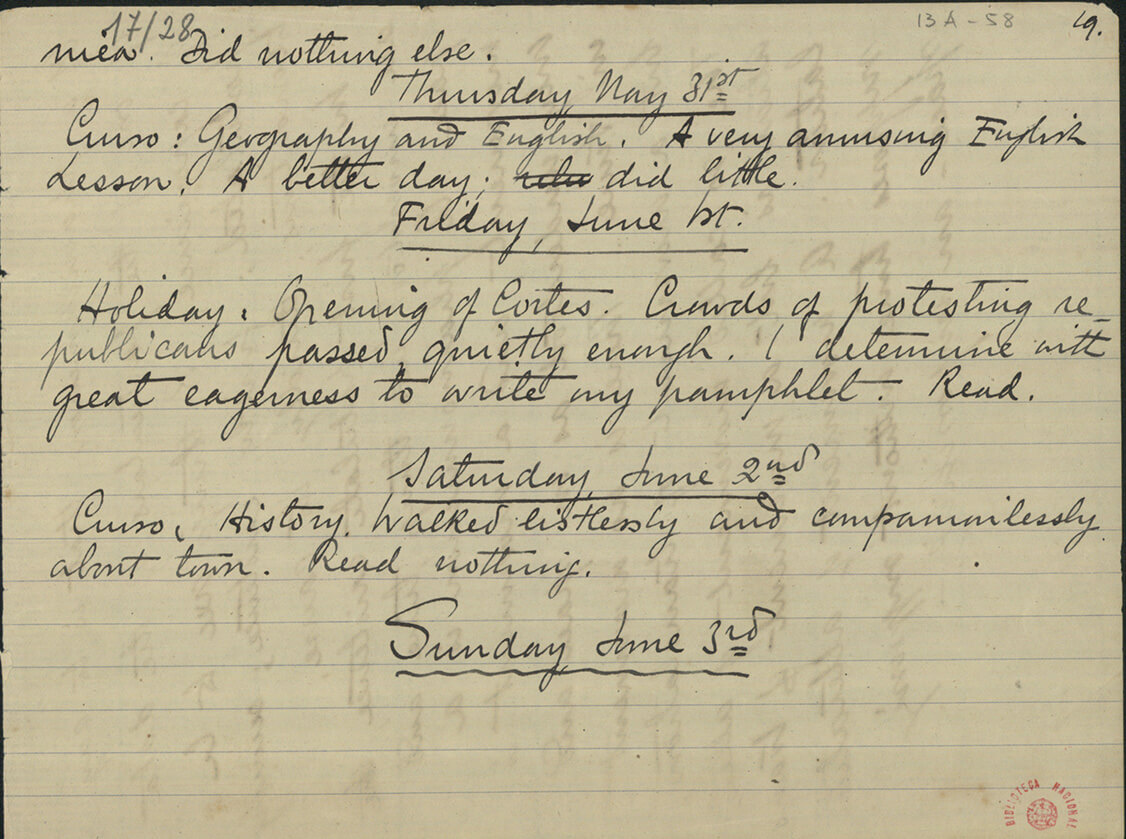 17/28
13A-58
19.
mea. Did nothing else.
Thursday, May 31st
Curso: Geography and English. A very amusing English
Lesson. A better day; did little.
Friday, June 1st.
Holiday. Opening of Cortes. Crowds of protesting re-
publicans passed, quietly enough. I determine with
great eagerness to write my pamphlet. Read.
Saturday, June 2nd
Curso, History. Walked listlessly and companionlessly
about town. Read nothing.
Sunday, June 3rd
BIBLIOTECA NACIONAL